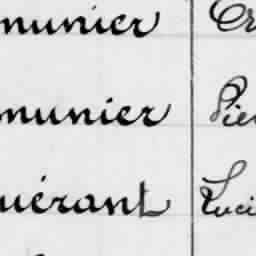 munier Er
munier Pier
uérant Luci